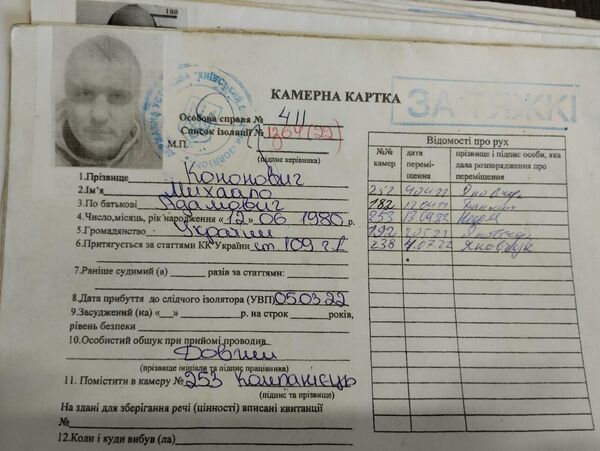 180
КАМЕРНА КАРТКА
ЗА ТЯЖКІ
Особова справа № 411
Список ізоляції № 1264 (22)
(підпис керівника)
М.П.
1.Прізвище Кононович
2.Ім'я Михайло
3.По батькові Адамович
4.Число,місяць, рік народження «12» 06 1980р.
5.Громадянство України
6.Притягується за статтями КК України ст. 109 ч.2
7.Раніше судимий (а) разів за статтями:
8.Дата прибуття до слідчого ізолятора (УВП) 05.03.22
9.Засуджений (на) «__» р. на строк років,
рівень безпеки
10.Особистий обшук при прийомі проводив
(прізвище ініціали та підпис працівника)
11. Помістити в камеру № 253
(підпис та прізвище)
На здані для зберігання речі (цінності) вписані квитанції
№
12.Коли і куди вибув (ла)
Відомості про рух
№№ камер
дата переміщення
прізвище і підпис особи, яка дала розпорядження про переміщення
257
182
253 13.09.22
192
238 4.07.22